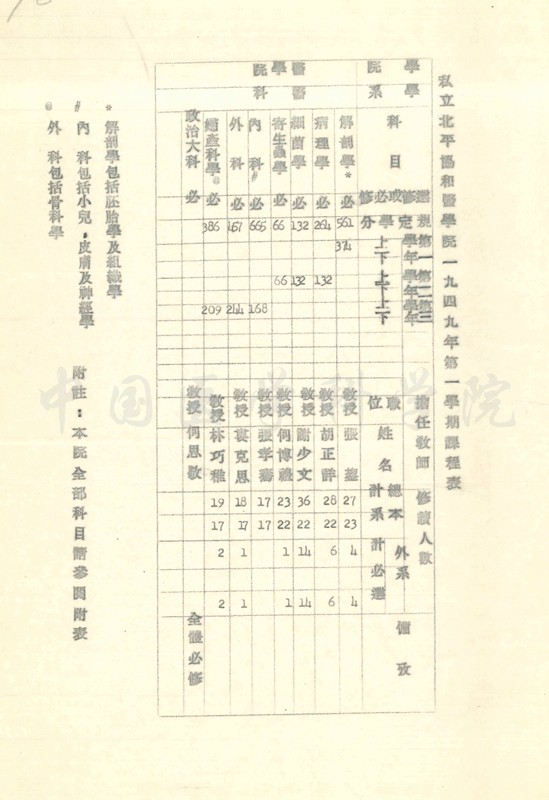 私立北平協和醫學院一九四九年第一學期課程表
學院 學系 科目 必修或選修 規定學分 第一學年 上 下 第二學年 上 下 第三學年 上 下 擔任教師 職位 姓名 修讀人數 總計 本系 外系 計 必 選 備攷
醫學院 醫科
解剖學* 必 561 374 教授 張鋆 27 23 4 4
病理學 必 264 132 教授 胡正詳 28 22 6 6
細菌學 必 132 132 教授 謝少文 36 22 14 14
寄生蟲學 必 66 66 教授 何博禮 23 22 1 1
內科〃 必 665 168 教授 張孝騫 17 17
外科 必 467 244 教授 裘克恩 18 17 1 1
婦產科學 必 386 209 教授 林巧稚 19 17 2 2
政治大科 必 教授 何思敬 全體必修
*解剖學包括胚胎學及組織學
〃內科包括小兒,皮膚及神經學
外科包括骨科學
附註:本院全部科目請參閱附表
中国医学科学院